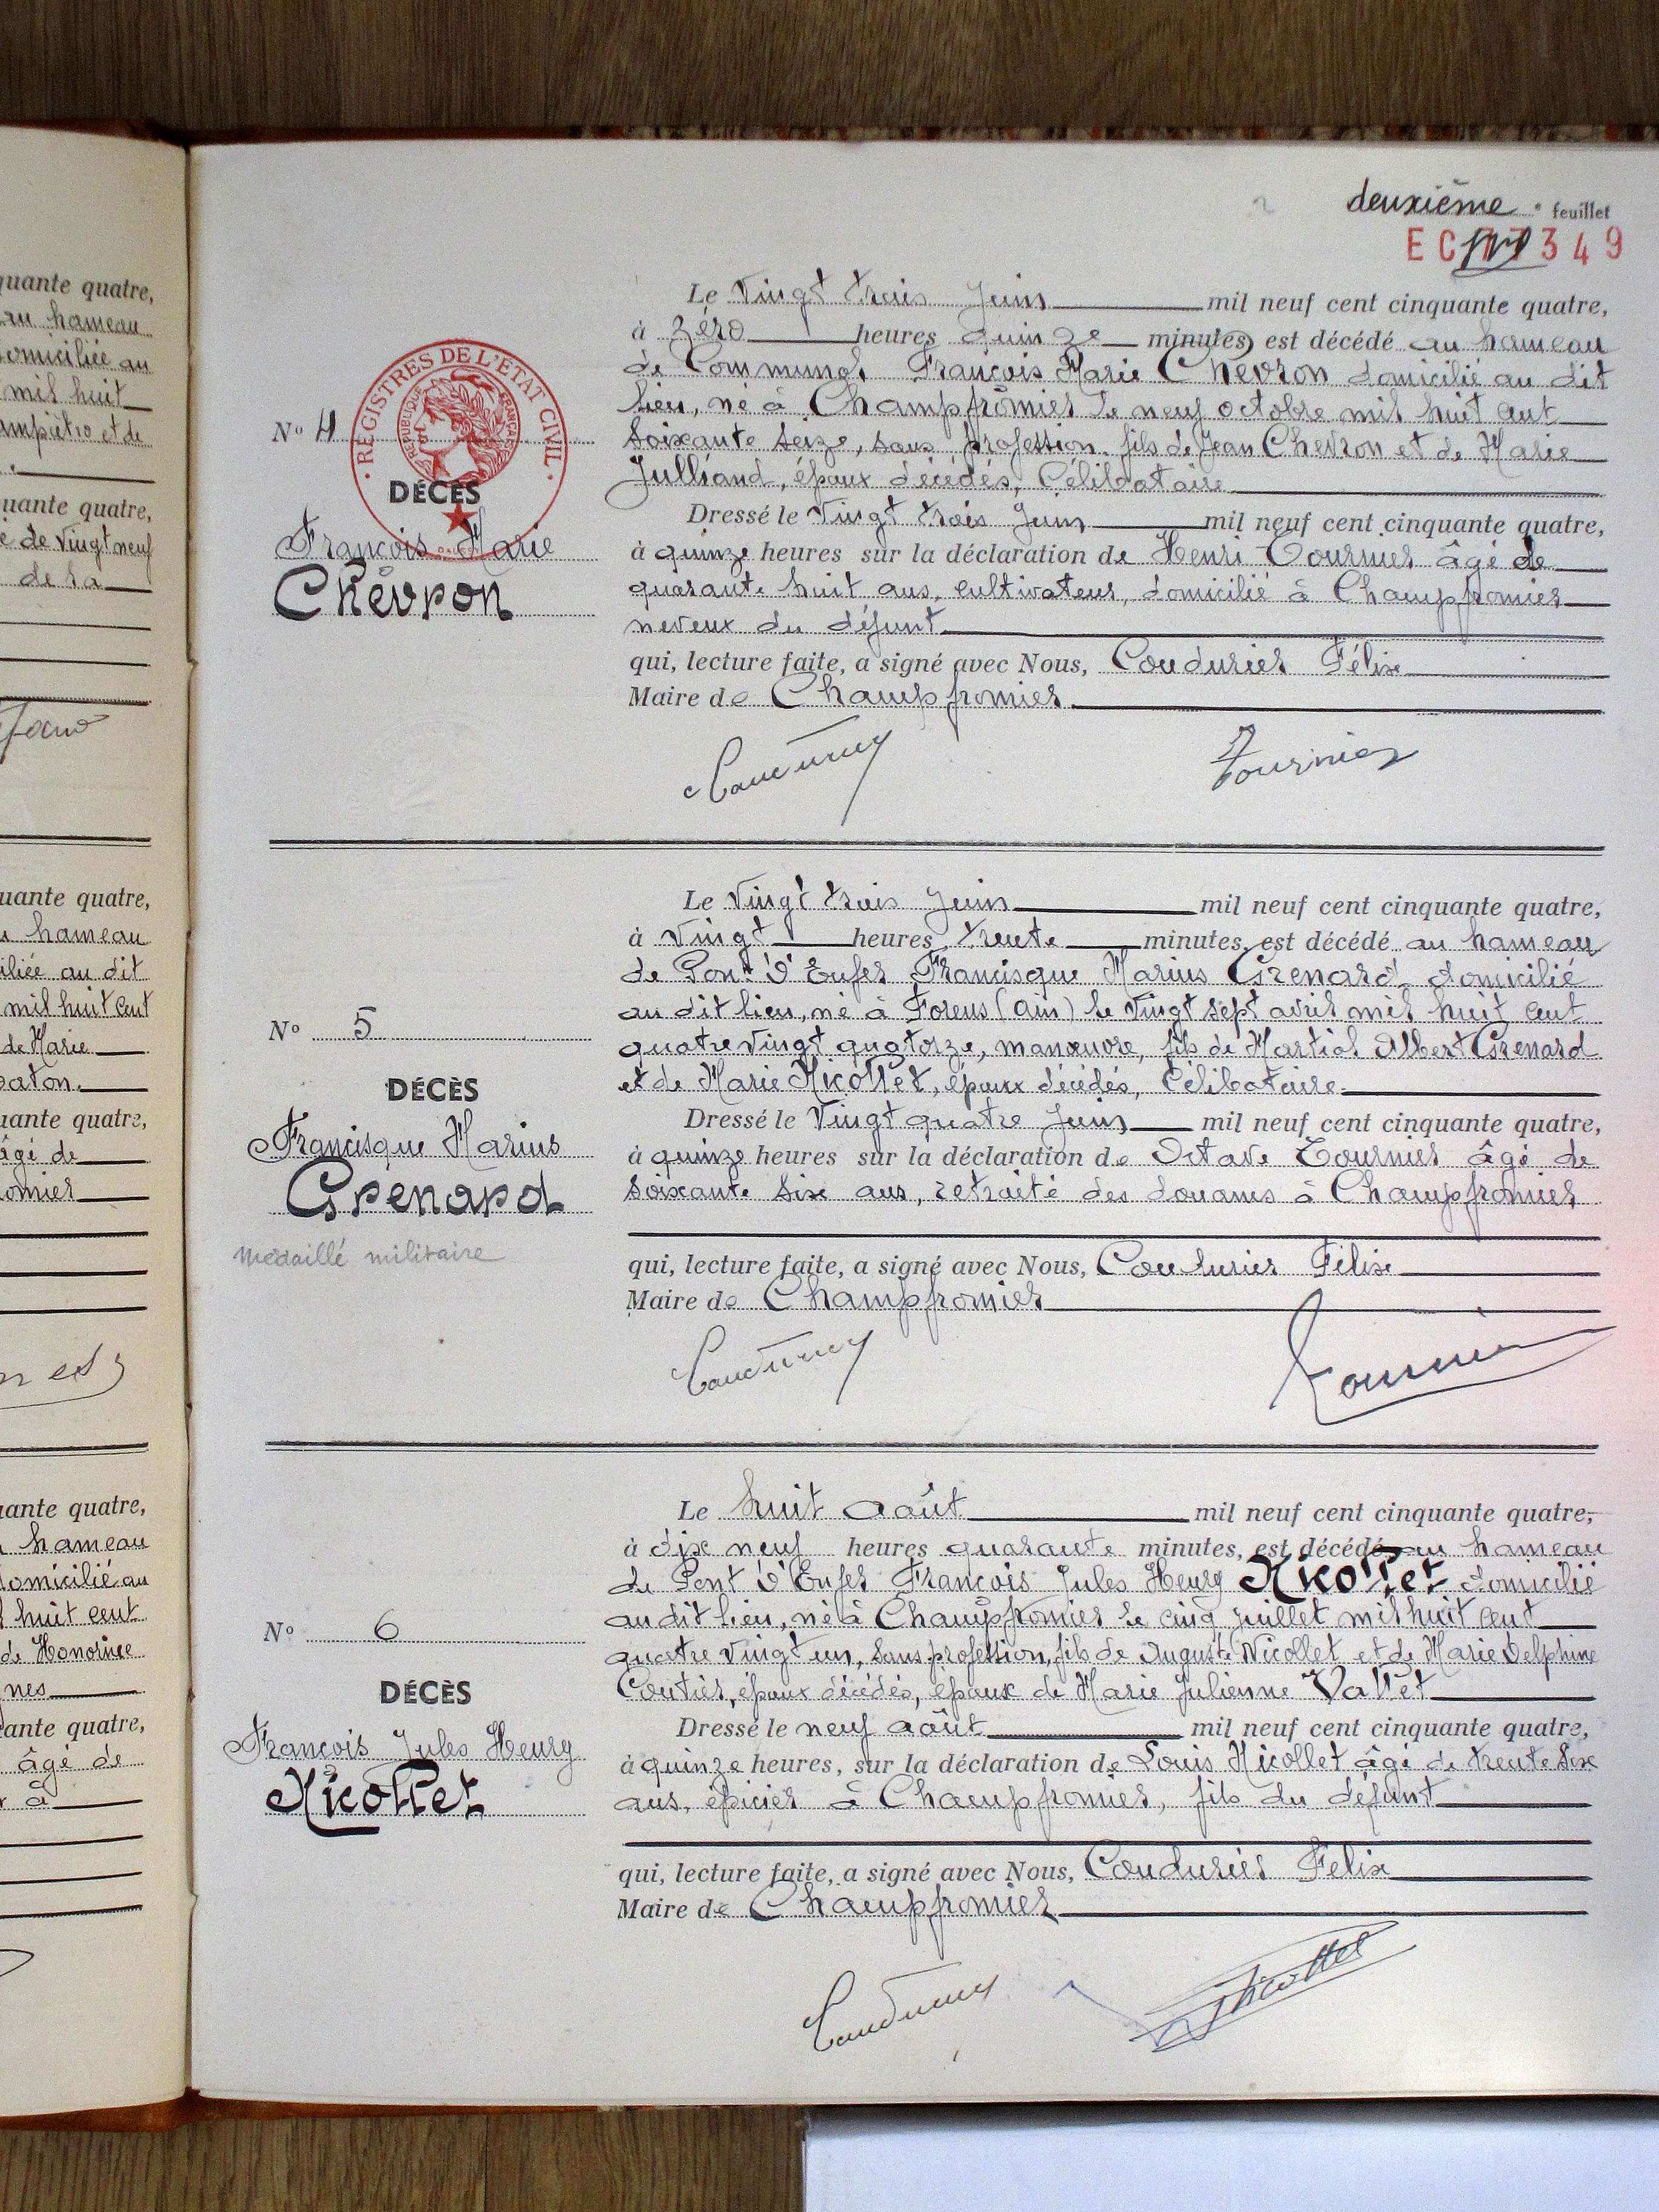 quante quatre,
au hameau
domiciliée au
mil huit
et de
quante quatre,
de Vingt neuf
de sa
uante quatre,
hameau
au dit
mil huit cent
de Marie
uante quatre,
âgé de
omier
uante quatre,
hameau
domicilié au
huit cent
de Honorine
nes
ante quatre,
âgé de
à
deuxième feuillet
EC 77349
Le Vingt trois Juin mil neuf cent cinquante quatre,
à zéro heures quinze minutes est décédé au hameau
de Communal François Marie Chevron domicilié au dit
lieu, né à Champfromier le neuf octobre mil huit cent
soixante seize, sans profession, fils de Jean Chevron et de Marie
Julliand, époux décédés, Célibataire
Dressé le Vingt trois Juin mil neuf cent cinquante quatre,
à quinze heures sur la déclaration de Henri Tournier âgé de
quarante huit ans, cultivateur, domicilié à Champfromier
neveux du défunt
qui, lecture faite, a signé avec Nous, Coudurier Félix
Maire de Champfromier
Tournier
N° 4
REGISTRES DE L'ÉTAT CIVIL
RÉPUBLIQUE FRANÇAISE
DÉCÈS
François Marie
Chevron
Le Vingt trois Juin mil neuf cent cinquante quatre,
à Vingt heures trente minutes, est décédé au hameau
de Pont d'Enfer Francisque Marius Grenard, domicilié
au dit lieu, né à Forens (Ain) le Vingt sept avril mil huit cent
quatre vingt quatorze, manœuvre, fils de Martial Albert Grenard
et de Marie Nicollet, époux décédés, Célibataire
Dressé le Vingt quatre Juin mil neuf cent cinquante quatre,
à quinze heures sur la déclaration de Octave Tournier âgé de
soixante six ans, retraité des douanes à Champfromier
qui, lecture faite, a signé avec Nous, Coudurier Félix
Maire de Champfromier
Tournier
N° 5
DÉCÈS
Francisque Marius
Grenard
médaillé militaire
Le huit août mil neuf cent cinquante quatre,
à dix neuf heures quarante minutes, est décédé au hameau
de Pont d'Enfer François Jules Henry Nicollet domicilié
au dit lieu, né à Champfromier le cinq juillet mil huit cent
quatre vingt un, sans profession, fils de Auguste Nicollet et de Marie Delphine
Coutier, époux décédés, époux de Marie Julienne Vallet
Dressé le neuf août mil neuf cent cinquante quatre,
à quinze heures, sur la déclaration de Louis Nicollet âgé de trente six
ans, épicier à Champfromier, fils du défunt
qui, lecture faite, a signé avec Nous, Coudurier Félix
Maire de Champfromier
Nicollet
N° 6
DÉCÈS
François Jules Henry
Nicollet